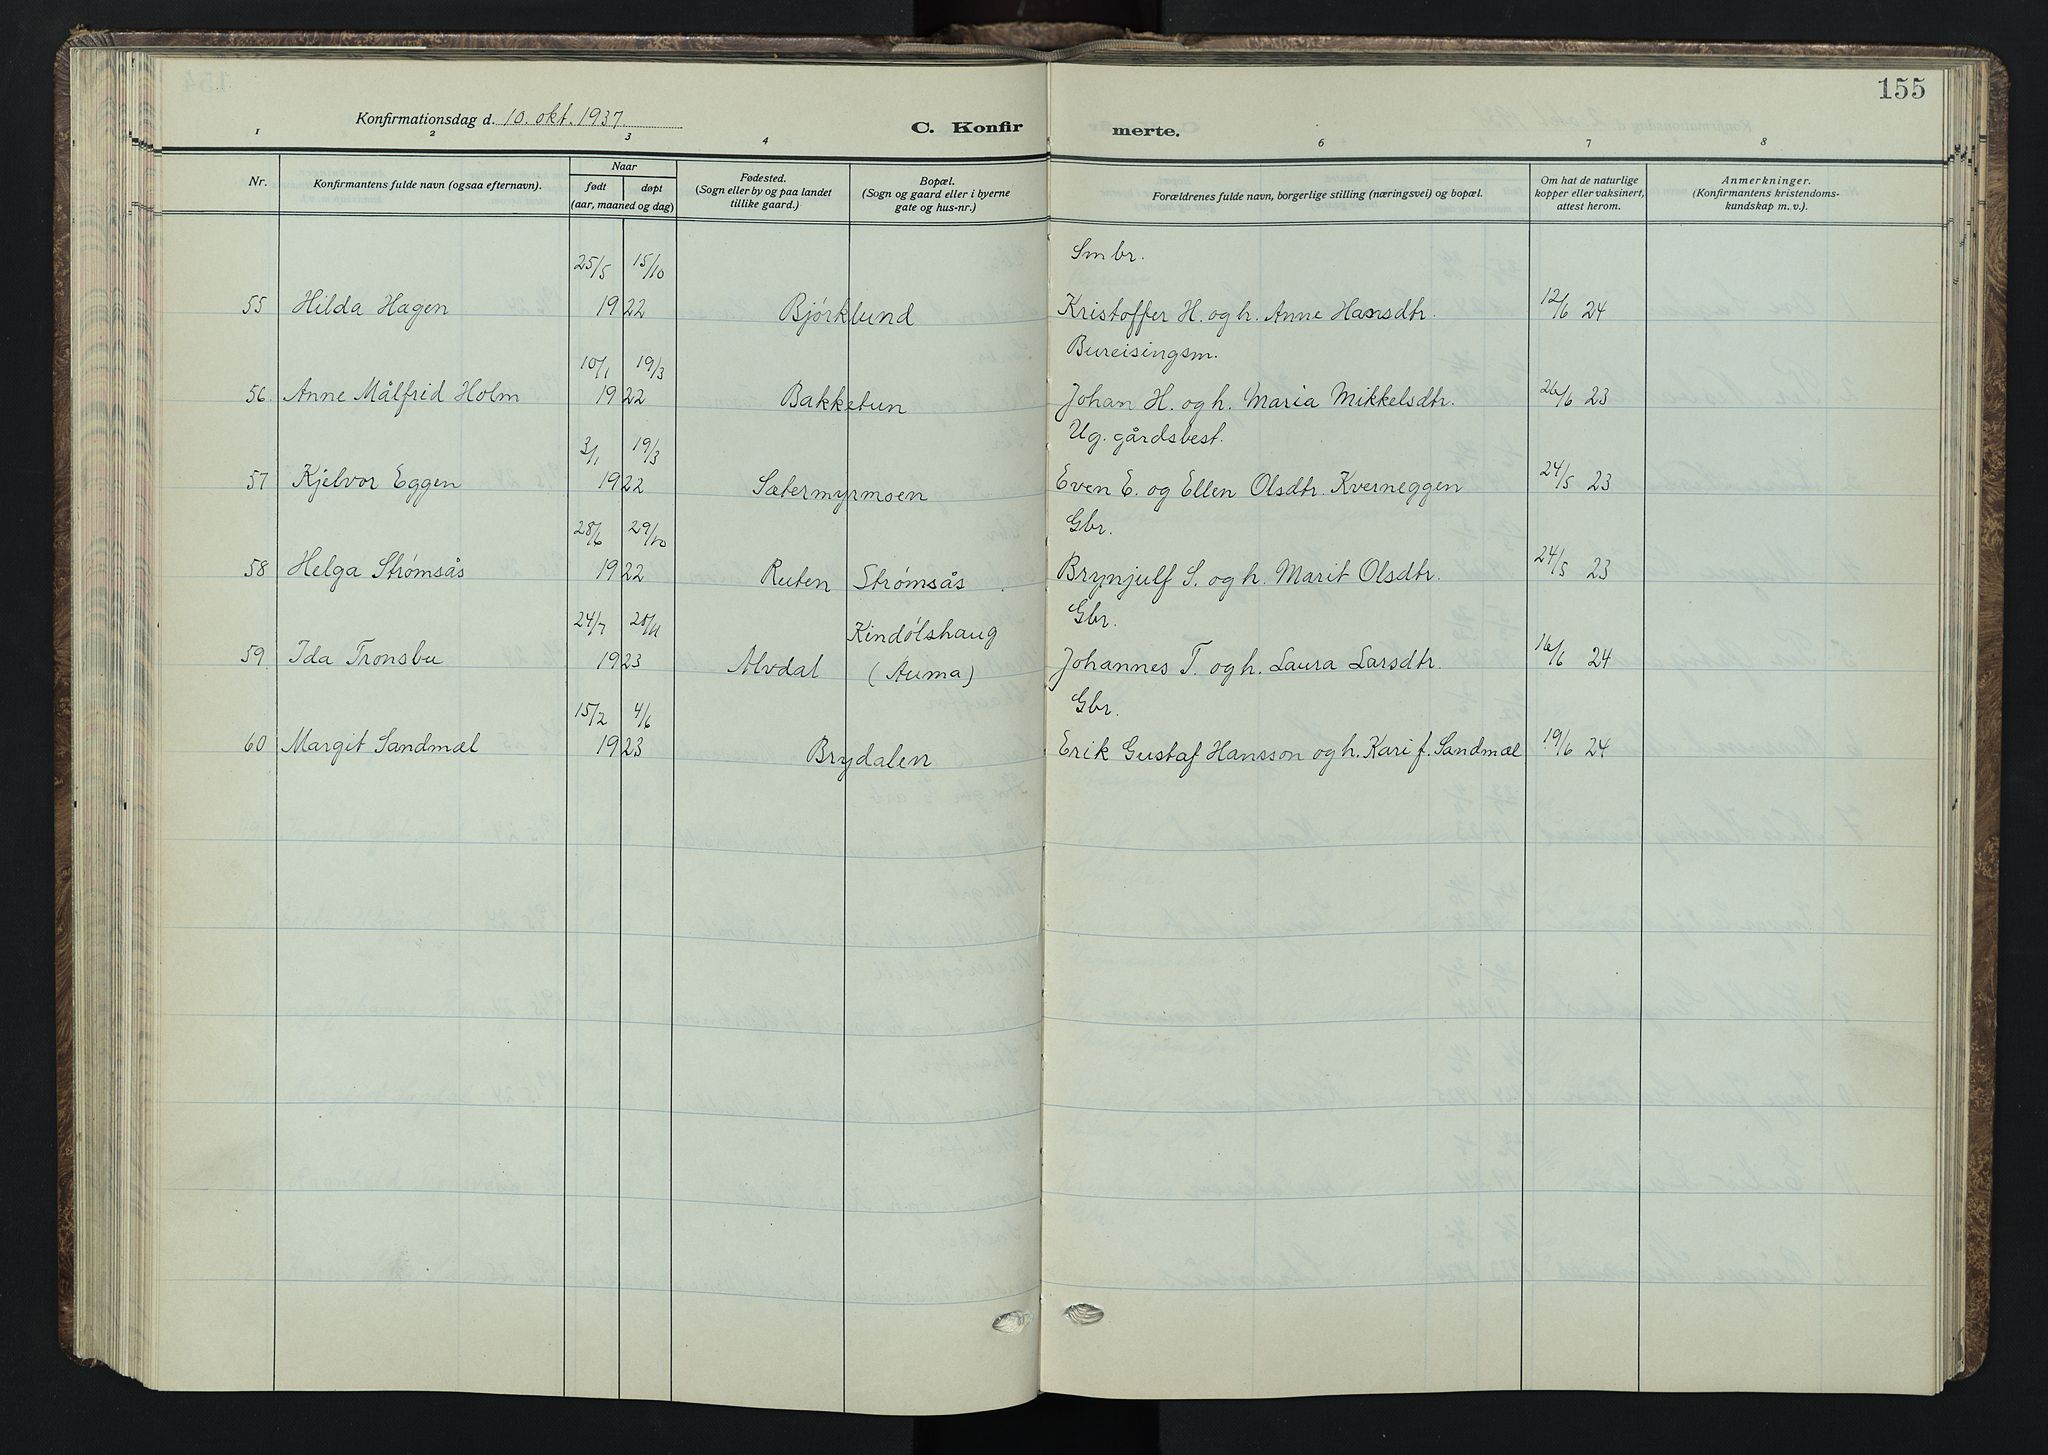 155
Konfirmationsdag d. 10. okt. 1937.
C. Konfir merte.
1 2 3 4 6 7 8
Nr.
Konfirmantens fulde navn (ogsaa efternavn).
Naar
født døpt
(aar, maaned og dag)
Fødested.
(Sogn eller by og paa landet
tillike gaard.)
Bopæl.
(Sogn og gaard eller i byerne
gate og hus-nr.)
Forældrenes fulde navn, borgerlige stilling (næringsvei) og bopæl.
Om hat de naturlige
kopper eller vaksinert,
attest herom.
Anmerkninger.
(Konfirmantens kristendoms-
kundskap m. v.).
25/5 15/10 Smbr.
55 Hilda Hagen 1922 Bjørklund Kristoffer H. og h. Anne Hansdtr. 12/6 24
10/1 19/3 Bureisingsm.
56. Anne Målfrid Holm 1922 Bakketun Johan H. og h. Maria Mikkelsdtr. 26/6 23
3/1 19/3 Ug. gårdsbest.
57 Kjelvor Eggen 1922 Sætermyrmoen Even E. og Ellen Olsdtr. Kverneggen 24/5 23
28/6 29/10 Gbr.
58 Helga Strømsås 1922 Ruten Strømsås Brynjulf S. og h. Marit Olsdtr. 24/5 23
24/7 Kindølshaug Gbr.
59. Ida Tronsbu 1923 Alvdal (Auma) Johannes T. og h. Laura Larsdtr. 16/6 24
15/2 4/6 Gbr.
60 Margit Sandmæl 1923 Brydalen Erik Gustaf Hansson og h. Kari f. Sandmæl 19/6 24